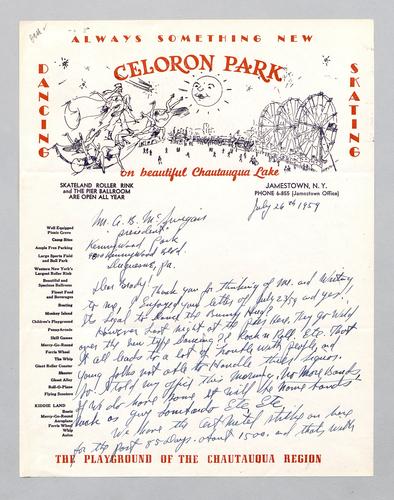 ALWAYS SOMETHING NEW
DANCING
SKATING
CELORON PARK
on beautiful Chautauqua Lake
SKATELAND ROLLER RINK
and THE PIER BALLROOM
ARE OPEN ALL YEAR
JAMESTOWN, N. Y.
PHONE 6-855 (Jamestown Office)
July 26th 1959
Mr. A. B. McSwigan
President.
Kennywood Park
Kennywood Blvd.
Duquesne, Pa.
Dear Brady!
Thank you for thinking of me. and Writing
to me, I enjoyed your letter of July 23/59 and yes!!
Its Legal to Dance the Bunny Hug!
However Last night at the Pier Here. They go Wild
over the new type Dancing?? Rock n Roll, Etc. That
it all leads to a lot of Trouble with people, and
Young folks not able to Handle their Liquor.
I told my office this morning, No More Bands
if We do have some it will be Name Bands!
such as guy Lombardo Etc, Etc,
We have the Cast Metal strike on here
for the past 85 Days. about 1500. and that, with
Well Equipped
Picnic Grove
Camp Sites
Ample Free Parking
Large Sports Field
and Ball Park
Western New York's
Largest Roller Rink
Beautiful and
Spacious Ballroom
Finest Food
and Beverages
Boating
Monkey Island
Children's Playground
Penny-Arcade
Skill Games
Merry-Go-Round
Ferris Wheel
The Whip
Giant Roller Coaster
Shooter
Ghost Alley
Roll-O-Plane
Flying Scooters
KIDDIE LAND
Boats
Merry-Go-Round
Aeroplane
Ferris Wheel
Whip
Autos
THE PLAYGROUND OF THE CHAUTAUQUA REGION